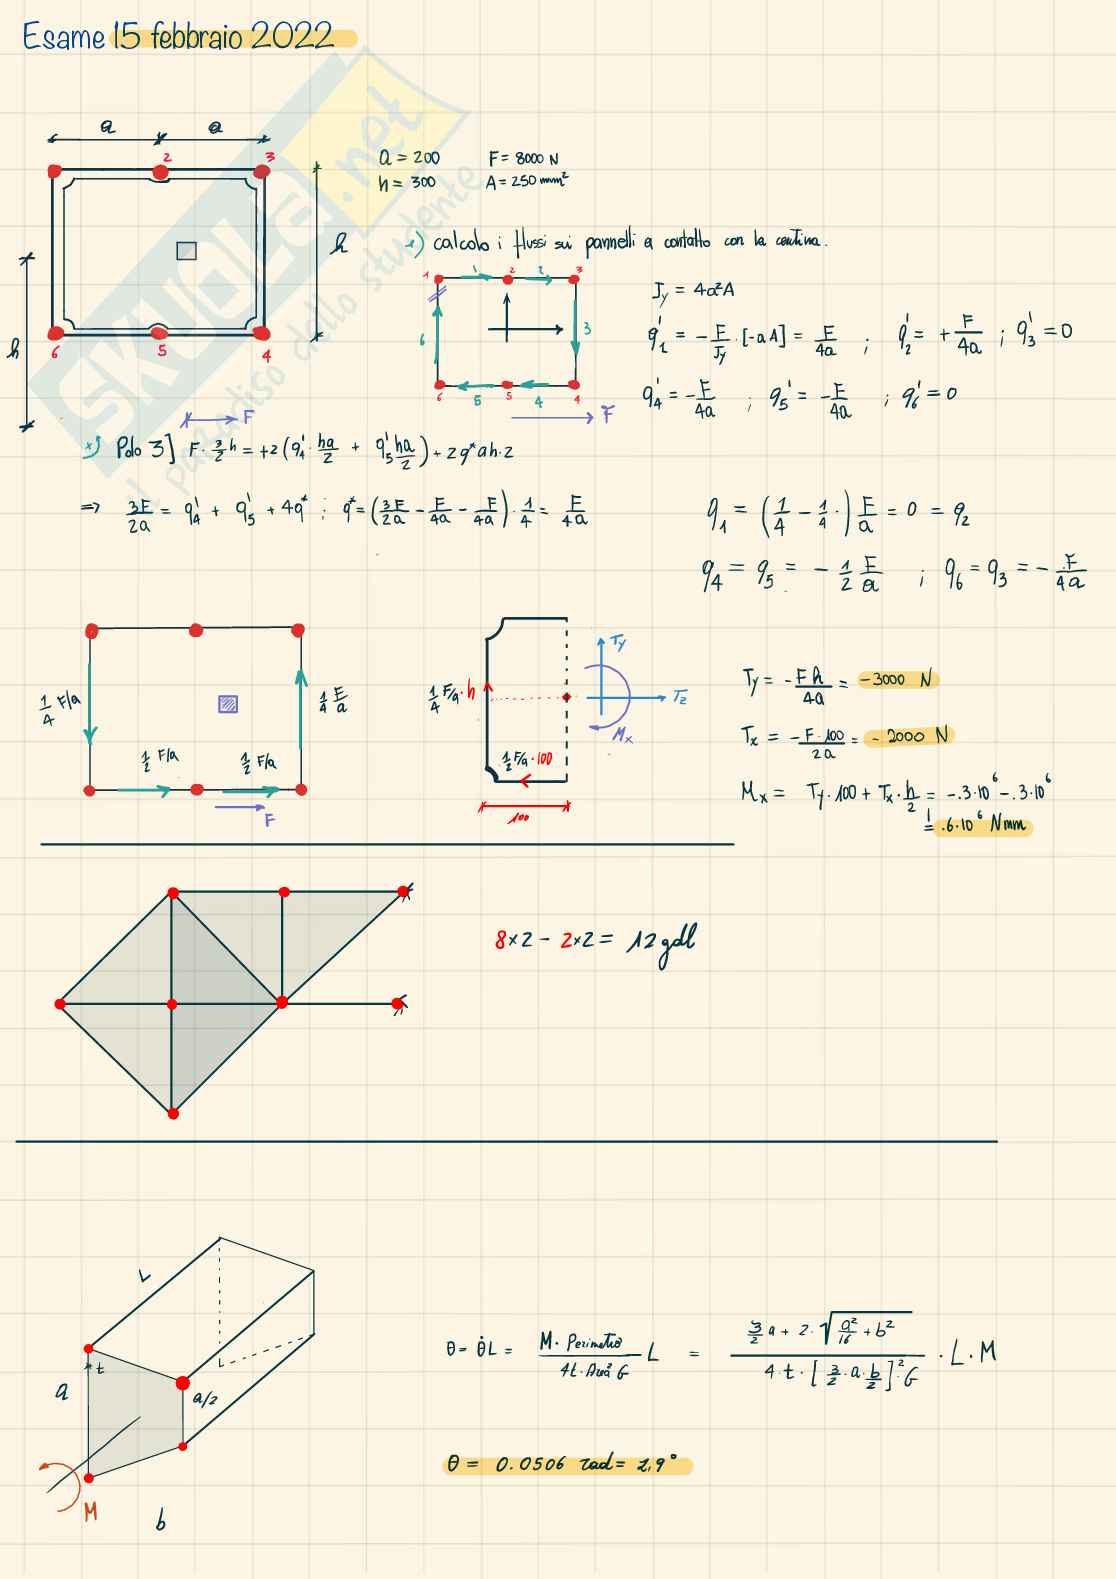 Esame 15 febbraio 2022
a a
2 3
h
h
6 5 4
F
a = 200 F = 8000 N
h = 300 A = 250 mm²
1) calcolo i flussi sui pannelli a contatto con la centina.
1 1 2 2 3
6 3
6 5 5 4 4
F
J_y = 4a²A
q₁' = - F/J_y · [-aA] = F/4a ; q₂' = + F/4a ; q₃' = 0
q₄' = - F/4a ; q₅' = - F/4a ; q₆' = 0
*) Polo 3] F · 3/2 h = +2(q₄' · ha/2 + q₅' ha/2) + 2q* ah · 2
⇒ 3F/2a = q₄' + q₅' + 4q* ; q* = (3F/2a - F/4a - F/4a) · 1/4 = F/4a
q₁ = (1/4 - 1/4 ·) F/a = 0 = q₂
q₄ = q₅ = - 1/2 F/a ; q₆ = q₃ = - F/4a
1/4 F/a 1/4 F/a
1/2 F/a 1/2 F/a
F
1/4 F/a · h
1/2 F/a · 100
100
T_y
T_z
M_x
T_y = - F h/4a = -3000 N
T_x = - F · 100/2a = - 2000 N
M_x = T_y · 100 + T_x · h/2 = -.3·10⁶ - .3·10⁶
= .6·10⁶ Nmm
8×2 - 2×2 = 12 gdl
L
t
a
a/2
M
b
θ = θ̇ L = M · Perimetro / 4t · Area² G L = 3/2 a + 2 · √(a²/16 + b²) / 4 · t · [3/2 · a · b/2]² · G · L · M
θ = 0.0506 rad = 2,9°
SKUOLA.net
il paradiso dello studente